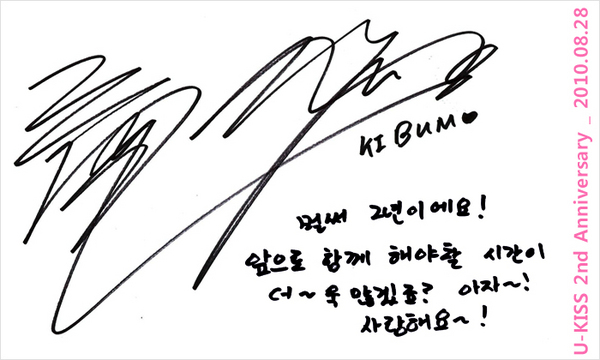 KI BUM♥
벌써 2년이에요!
앞으로 함께 해야할 시간이
더~욱 많겠죠? 아자~!
사랑해요~!
U-KISS 2nd Anniversary _ 2010.08.28